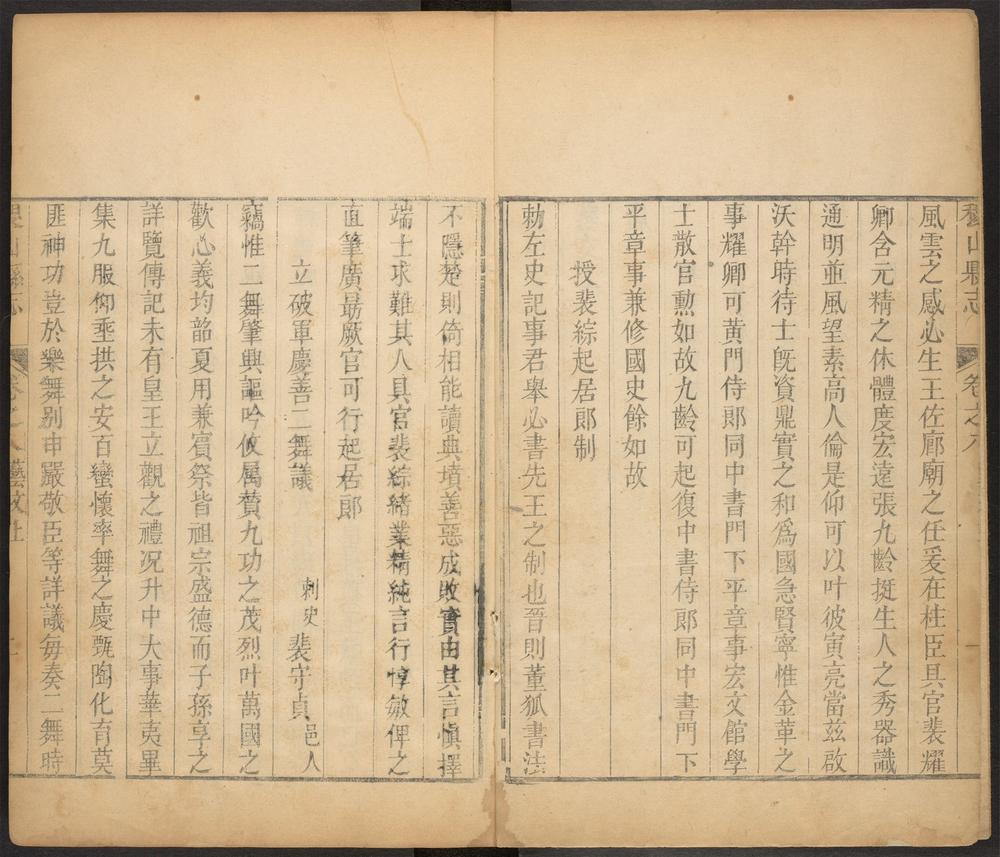 稷山縣志 卷之八
風雲之感必生王佐廊廟之任爰在柱臣具官裴耀
卿含元精之休體度宏遠張九齡挺生人之秀器識
通明並風望素高人倫是仰可以叶彼寅亮當茲啟
沃幹時待士旣資鼎實之和爲國急賢寧惟金革之
事耀卿可黄門侍郎同中書門下平章事宏文館學
士散官勲如故九齡可起復中書侍郎同中書門下
平章事兼修國史餘如故
授裴綜起居郎制
勅左史記事君舉必書先王之制也晉則董狐書法
不隱楚則倚相能讀典墳善惡成敗實由其言愼擇
端士求難其人具官裴綜緒業精純言行惇敏俾之
直筆廣朂厥官可行起居郎
立破軍慶善二舞議 刺史 裴守貞 邑人
竊惟二舞肇興謳吟攸屬贊九功之茂烈叶萬國之
歡心義均韶夏用兼賓祭皆祖宗盛德而子孫享之
詳覽傳記未有皇王立觀之禮况升中大事華夷畢
集九服仰垂拱之安百蠻懷率舞之慶甄陶化育莫
匪神功豈於樂舞别申嚴敬臣等詳議每奏二舞時
稷山縣志 卷之八藝文上